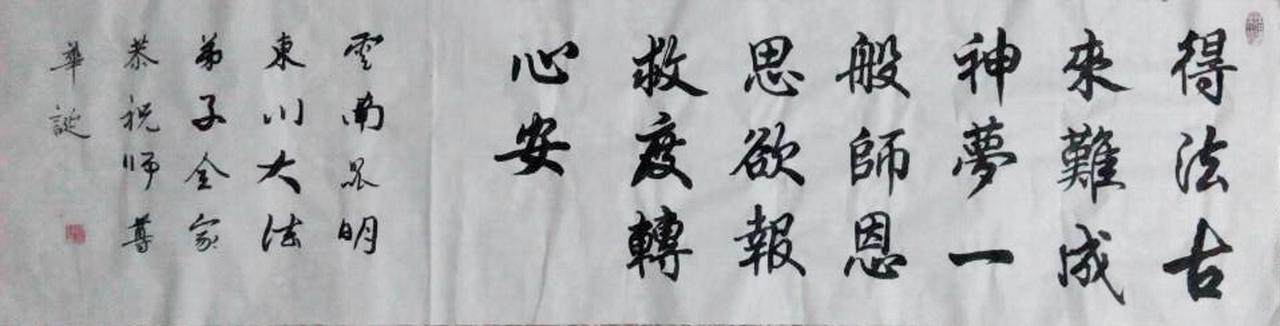 得法古
來難成
神夢一
般師恩
思欲報
救度轉
心安
雲南昆明
東川大法
弟子全家
恭祝师尊
華誕